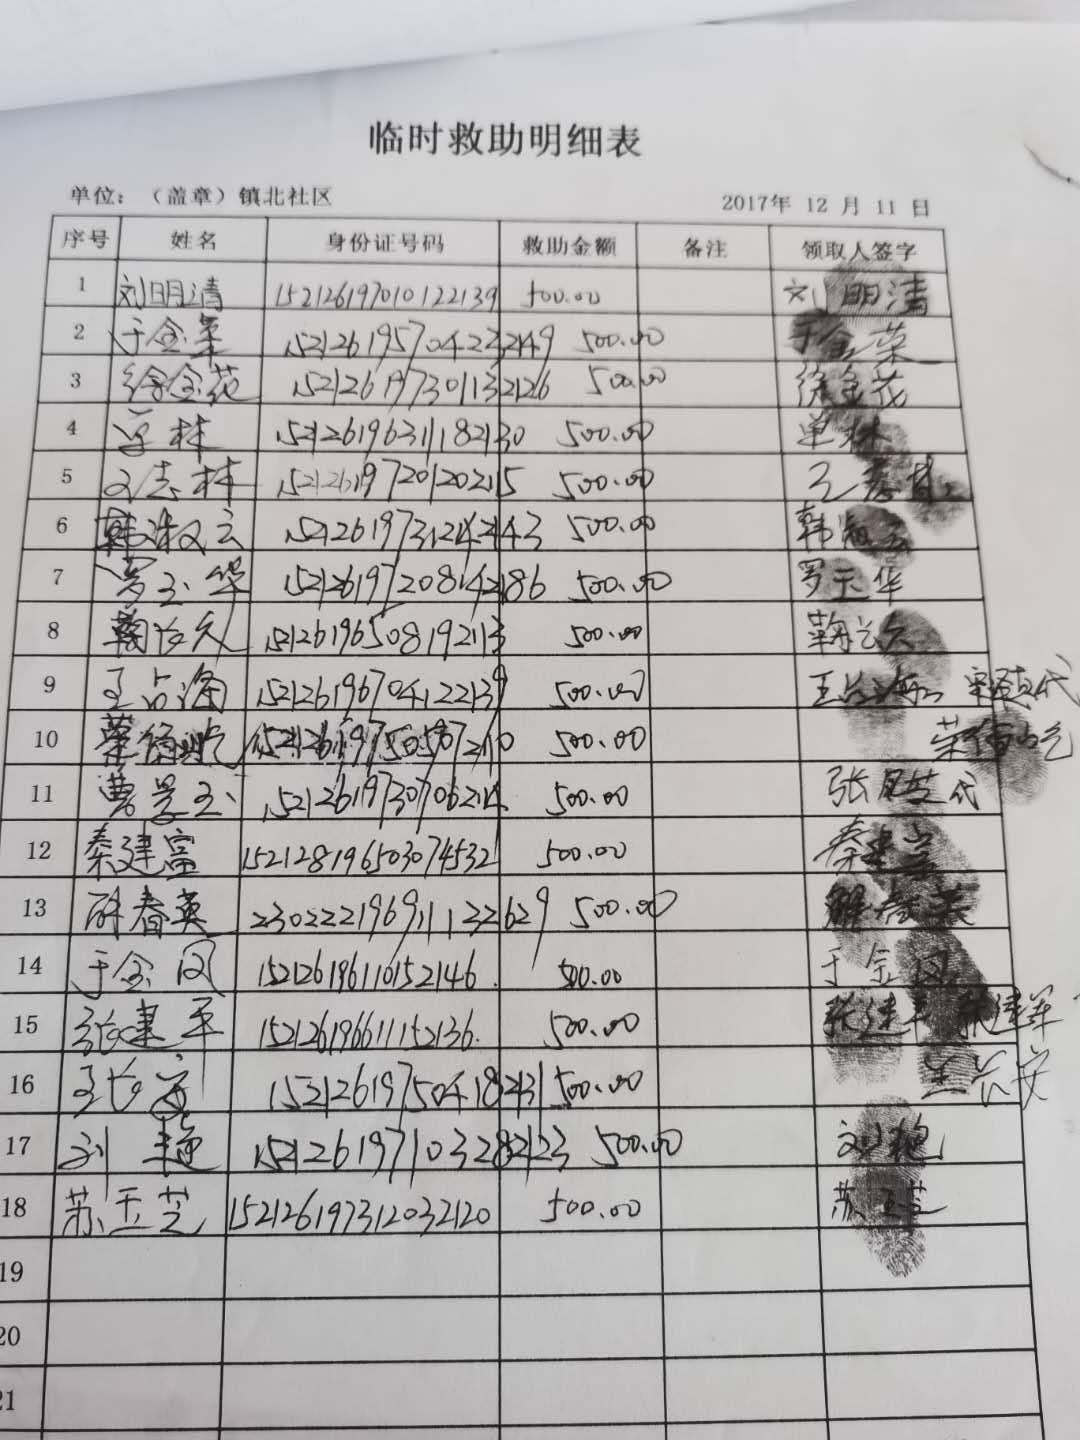 临时救助明细表
单位：（盖章）镇北社区 2017年 12 月 11 日
序号 姓名 身份证号码 救助金额 备注 领取人签字
1 刘明清 152126197010122139 500.00 刘明清
2 于金荣 152126195704232249 500.00 于金荣
3 徐金花 152126197301132126 500.00 徐金花
4 单林 152126196311182130 500.00 单林
5 152126197201202115 500.00
6 韩淑云 500.00 韩淑云
7 罗玉华 152126197208142186 500.00 罗玉华
8 152126196508192113 500.00
9 王占海 152126196704122139 500.00 王占海 代
10 500.00
11 曹景玉 500.00 张凤芝代
12 秦建富 152128196503074532 500.00 秦建富
13 解春英 230222196911132629 500.00 解春英
14 于金凤 152126196110152146 500.00 于金凤
15 张建平 152126196611152136 500.00 张建平 张建军
16 500.00
17 刘艳 152126197103282123 500.00 刘艳
18 苏玉芝 152126197312032120 500.00 苏玉芝
19
20
21